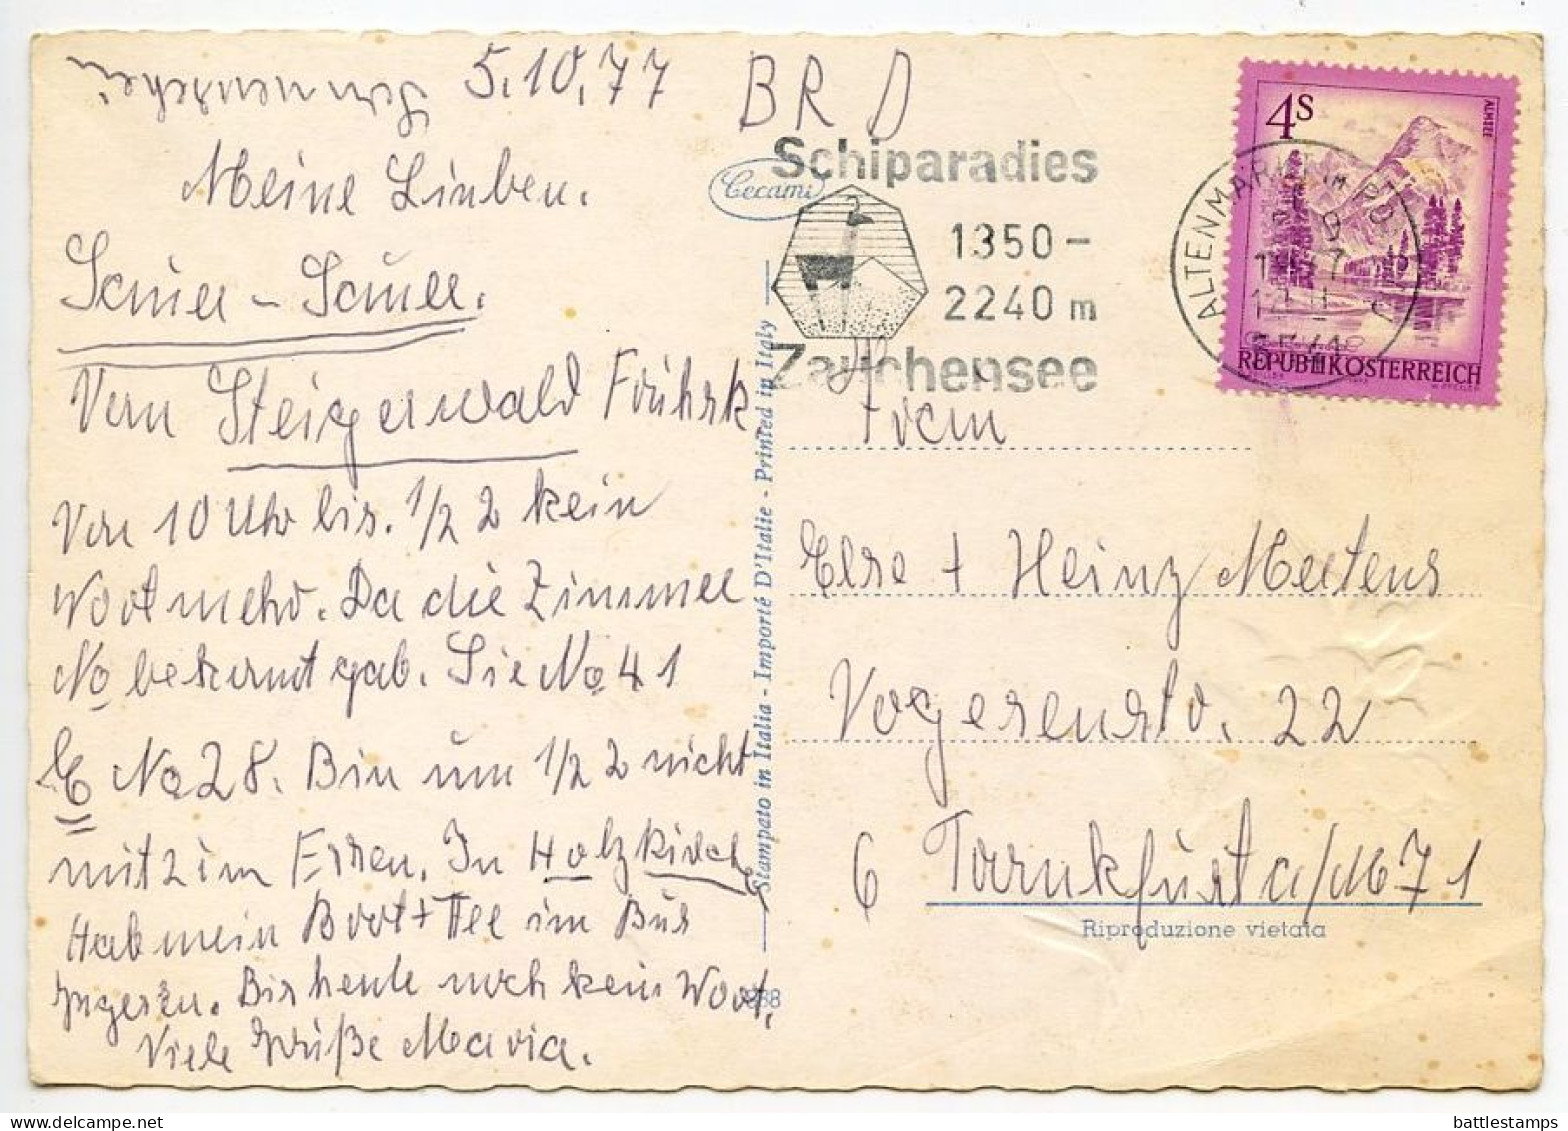 Sonnenschein
5.10.77
BRD
Meine Lieben.
Sauer - Sauer.
Vom Steigerwald Frühstk.
Von 10 Uhr bis. 1/2 2 kein
Wort mehr. Da die Zimmer
No bekannt gab. Sie No 41
E No 28. Bin um 1/2 2 nicht
mit zim Essen. In Holzkirch
Hab mein Brot + Tee im Bus
gegessen. Bis heute noch kein Wort.
Viele Grüße Maria.
Cecami
Stampato in Italia - Importé D'Italie - Printed in Italy
Schiparadies
1350 -
2240 m
Zauchensee
ALTENMARKT IM
4 S
ALMSEE
REPUBLIK ÖSTERREICH
Else + Heinz Mertens
Vogesenstr. 22
6 Frankfurt a/M 71
Riproduzione vietata
battlestamps